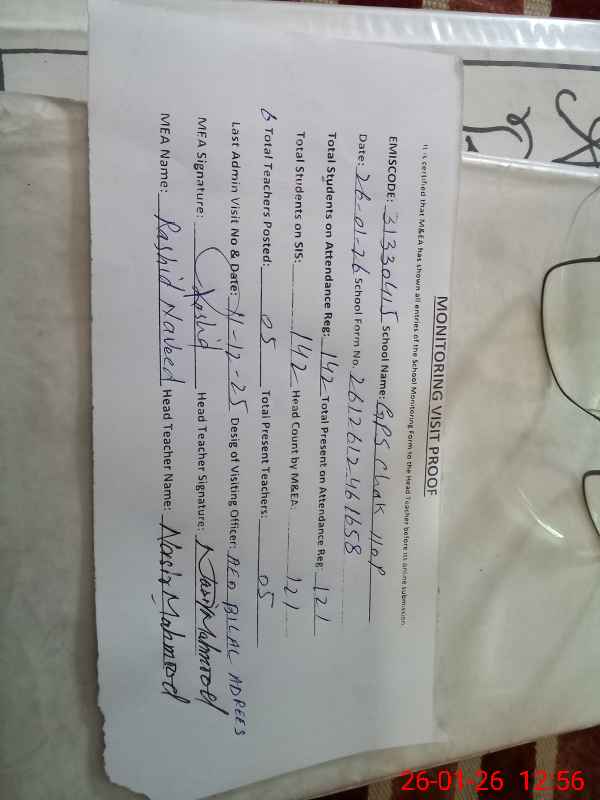 MONITORING VISIT PROOF
It is certified that M&EA has shown all entries of the School Monitoring Form to the Head Teacher before its online submission.
EMISCODE: 31330415 School Name: GPS Chak 110P
Date: 26-01-26 School Form No. 2612612461658
Total Students on Attendance Reg: 142 Total Present on Attendance Reg: 121
Total Students on SIS: 142 Head Count by M&EA: 121
6 Total Teachers Posted: 05 Total Present Teachers: 05
Last Admin Visit No & Date: 11-12-25 Desig of Visiting Officer: AEO BILAL ADREES
MEA Signature: Rashid Head Teacher Signature: Nasir Mahmood
MEA Name: Rashid Naveed Head Teacher Name: Nasir Mahmood
26-01-26 12:56